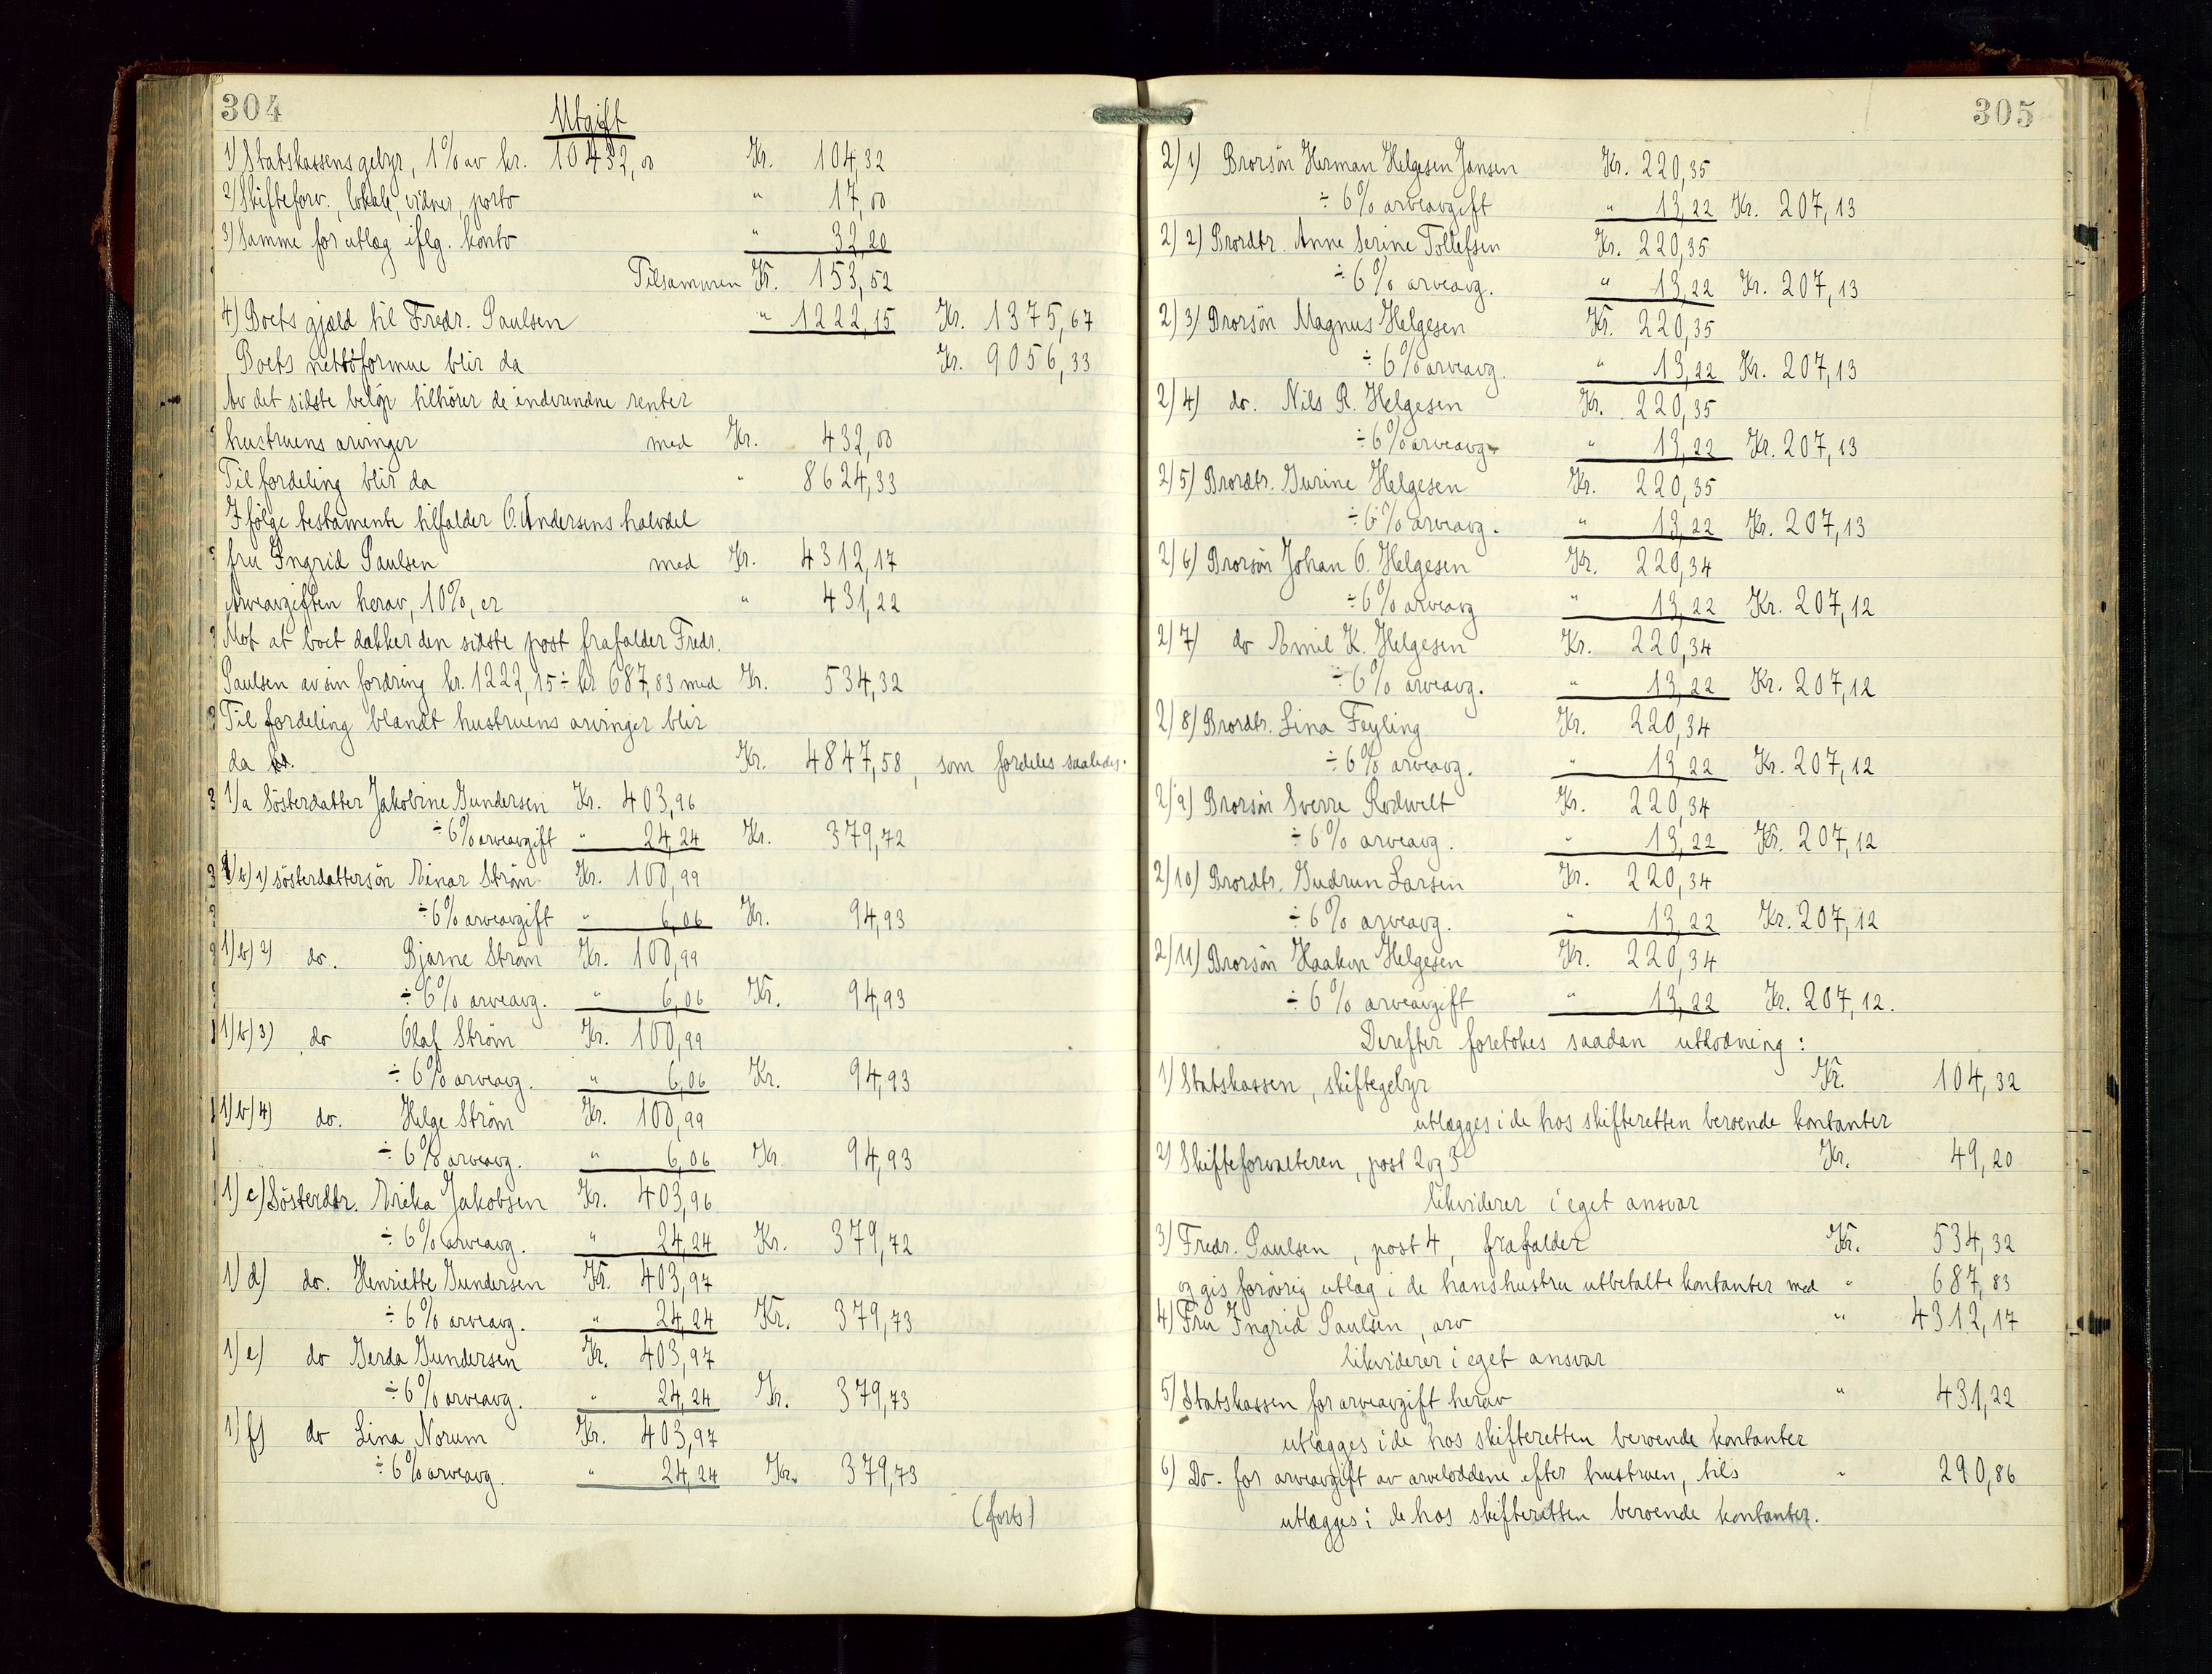 304
Utgift
1) Statskassens gebyr, 1% av kr. 10432,00 Kr. 104,32
2) Skifteforv., lokale, vidner, porto " 17,00
3) Samme for utlæg iflg. konto " 32,20
Tilsammen Kr. 153,52
4) Boets gjæld til Fredr. Paulsen " 1222,15 Kr. 1375,67
Boets nettoformue blir da Kr. 9056,33
Av det sidste beløp tilhører de indvundne renter
hustruens arvinger med Kr. 432,00
Til fordeling blir da " 8624,33
Ifølge testamente tilfalder O. Andersens halvdel
fru Ingrid Paulsen med Kr. 4312,17
Arveavgiften herav, 10%, er " 431,22
Mot at boet dækker den sidste post frafalder Fredr.
Paulsen av sin fordring kr. 1222,15 ÷ kr 687,83 med Kr. 534,32
Til fordeling blandt hustruens arvinger blir
da Kr. 4847,58, som fordeles saaledes:
1/a Søsterdatter Jakobine Gundersen Kr. 403,96
÷ 6% arveavgift " 24,24 Kr. 379,72
1/b/1) søsterdattersøn Einar Strøm Kr. 100,99
÷ 6% arveavgift " 6,06 Kr. 94,93
1/b/2) do. Bjarne Strøm Kr. 100,99
÷ 6% arveavg. " 6,06 Kr. 94,93
1/b/3) do Olaf Strøm Kr. 100,99
÷ 6% arveavg. " 6,06 Kr. 94,93
1/b/4) do. Helge Strøm Kr. 100,99
÷ 6% arveavg. " 6,06 Kr. 94,93
1/c) Søsterdtr. Erika Jakobsen Kr. 403,96
÷ 6% arveavg. " 24,24 Kr. 379,72
1/d) do. Henriette Gundersen Kr. 403,97
÷ 6% arveavg. " 24,24 Kr. 379,73
1/e) do Gerda Gundersen Kr. 403,97
÷ 6% arveavg. " 24,24 Kr. 379,73
1/f) do Lina Norum Kr. 403,97
÷ 6% arveavg. " 24,24 Kr. 379,73
(forts)
305
2) 1) Brorsøn Herman Helgesen Jansen Kr. 220,35
÷ 6% arveavgift " 13,22 Kr. 207,13
2) 2) Brordtr. Anne Serine Tollefsen Kr. 220,35
÷ 6% arveavg. " 13,22 Kr. 207,13
2) 3) Brorsøn Magnus Helgesen Kr. 220,35
÷ 6% arveavg. " 13,22 Kr. 207,13
2) 4) do. Nils R. Helgesen Kr. 220,35
÷ 6% arveavg. " 13,22 Kr. 207,13
2) 5) Brordtr. Gurine Helgesen Kr. 220,35
÷ 6% arveavg. " 13,22 Kr. 207,13
2) 6) Brorsøn Johan O. Helgesen Kr. 220,34
÷ 6% arveavg " 13,22 Kr. 207,12
2) 7) do Emil K. Helgesen Kr. 220,34
÷ 6% arveavg. " 13,22 Kr. 207,12
2) 8) Brordtr. Lina Feyling Kr. 220,34
÷ 6% arveavg. " 13,22 Kr. 207,12
2) 9) Brorsøn Sverre Rodwelt Kr. 220,34
÷ 6% arveavg. " 13,22 Kr. 207,12
2) 10) Brordtr. Gudrun Larsen Kr. 220,34
÷ 6% arveavg. " 13,22 Kr. 207,12
2) 11) Brorsøn Haakon Helgesen Kr. 220,34
÷ 6% arveavgift " 13,22 Kr. 207,12.
Derefter foretokes saadan utlodning:
1) Statskassen, skiftegebyr Kr. 104,32
utlægges i de hos skifteretten beroende kontanter
2) Skifteforvalteren, post 2 og 3 Kr. 49,20
likviderer i eget ansvar
3) Fredr. Paulsen, post 4, frafalder Kr. 534,32
og gis forøvrig utlæg i de hans hustru utbetalte kontanter med " 687,83
4) Fru Ingrid Paulsen, arv " 4312,17
likviderer i eget ansvar
5) Statskassen for arveavgift herav " 431,22
utlægges i de hos skifteretten beroende kontanter
6) Do. for arveavgift av arveloddene efter hustruen, tils " 290,86
utlægges i de hos skifteretten beroende kontanter.